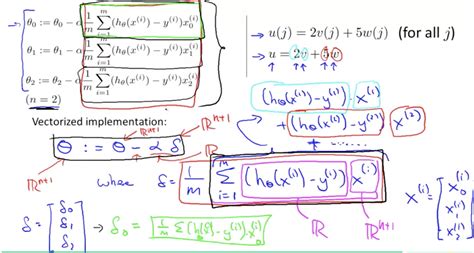 θ₀ := θ₀ − α (1/m) Σᵢ₌₁ᵐ (h_θ(x⁽ⁱ⁾) − y⁽ⁱ⁾)x₀⁽ⁱ⁾
θ₁ := θ₁ − α (1/m) Σᵢ₌₁ᵐ (h_θ(x⁽ⁱ⁾) − y⁽ⁱ⁾)x₁⁽ⁱ⁾
θ₂ := θ₂ − α (1/m) Σᵢ₌₁ᵐ (h_θ(x⁽ⁱ⁾) − y⁽ⁱ⁾)x₂⁽ⁱ⁾
(n = 2)
→ u(j) = 2v(j) + 5w(j) (for all j)
→ u = 2v + 5w
(h_θ(x⁽¹⁾) − y⁽¹⁾) x⁽¹⁾
+ (h_θ(x⁽²⁾) − y⁽²⁾) x⁽²⁾
+ ......
Vectorized implementation:
ℝⁿ⁺¹ ℝ ℝⁿ⁺¹
θ := θ − α δ
ℝⁿ⁺¹
where δ = (1/m) Σᵢ₌₁ᵐ (h_θ(x⁽ⁱ⁾) − y⁽ⁱ⁾) x⁽ⁱ⁾
ℝ ℝⁿ⁺¹
x⁽ⁱ⁾ = [x₀⁽ⁱ⁾ x₁⁽ⁱ⁾ x₂⁽ⁱ⁾]
δ = [δ₀ δ₁ δ₂] → δ₀ = (1/m) Σ (h_θ(x⁽ⁱ⁾) − y⁽ⁱ⁾) x₀⁽ⁱ⁾